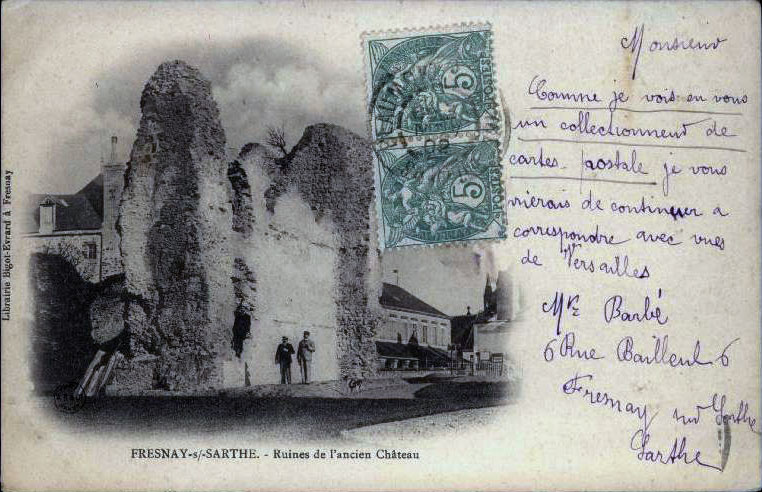 Monsieur
Comme je vois en vous
un collectionneur de
cartes postale je vous
prierais de continuer a
correspondre avec vues
de Versailles
Barbé
6 Rue Bailleul 6
Fresnay sur Sarthe
Sarthe
5
5
Librairie Bigot-Evrard à Fresnay
FRESNAY-s/-SARTHE. - Ruines de l'ancien Château